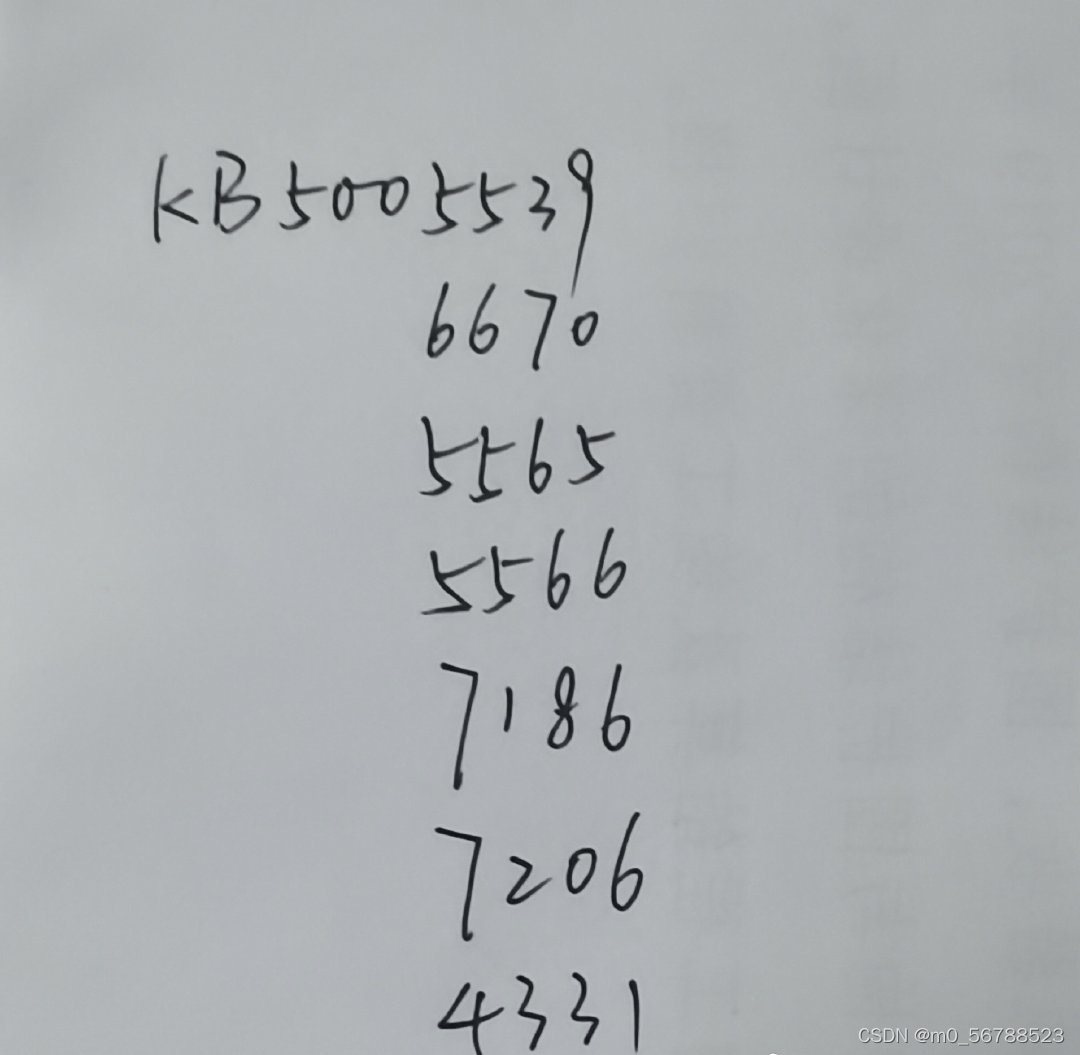 KB5005539
6670
5565
5566
7186
7206
4331
CSDN @m0_56788523